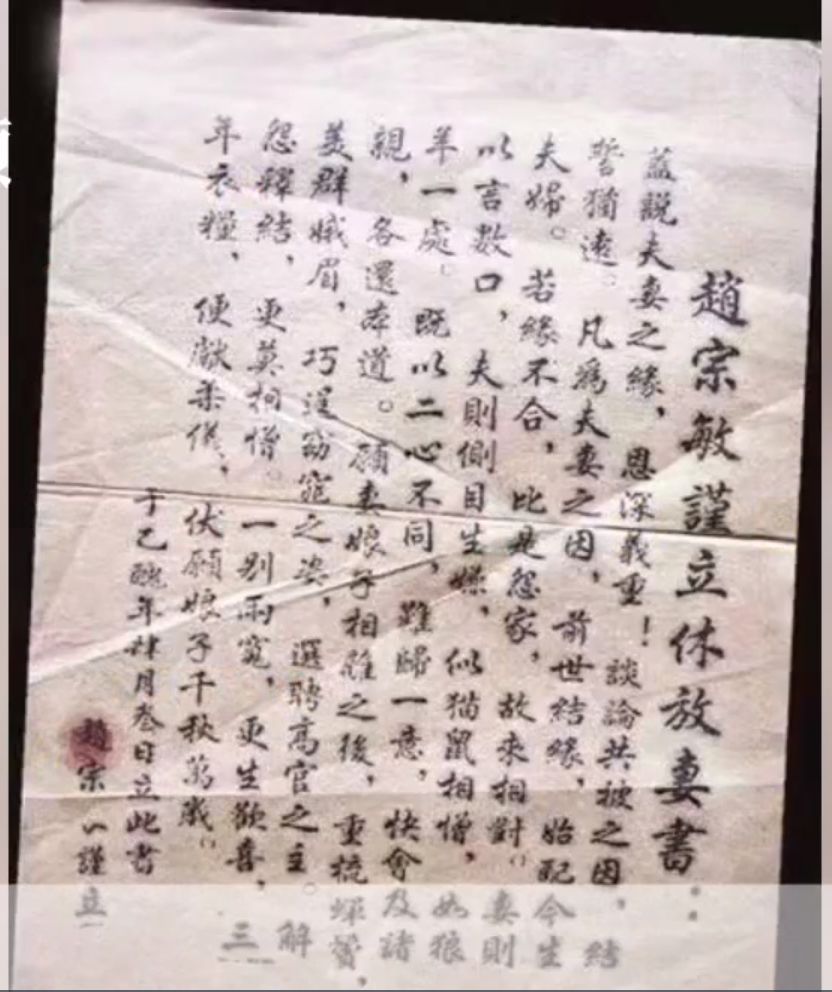 趙宗敏謹立休放妻書：
蓋說夫妻之緣，恩深義重！談論共被之因，結
誓猶遠。凡爲夫妻之因，前世結緣，始配今生
夫婦。若緣不合，比是怨家，故來相對。妻則
以言數口，夫則側目生嫌，似猫鼠相憎，如狼
羊一處。既以二心不同，難歸一意，快會及諸
親，各還本道。願妻娘子相離之後，重梳蟬鬢，
美群娥眉，巧逞窈窕之姿，選聘高官之主。解
怨釋結，更莫相憎。一別兩寬，更生歡喜，三
年衣糧，便獻柔儀。伏願娘子千秋萬歲。
于乙醜年肆月叁日立此書
趙宗謹立